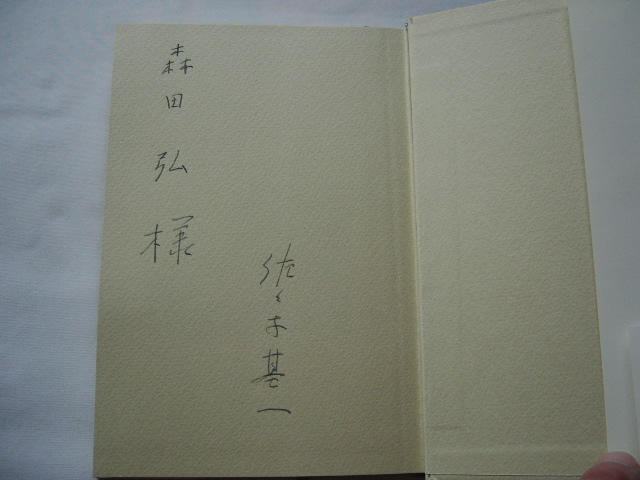 森田弘様
佐々木基一